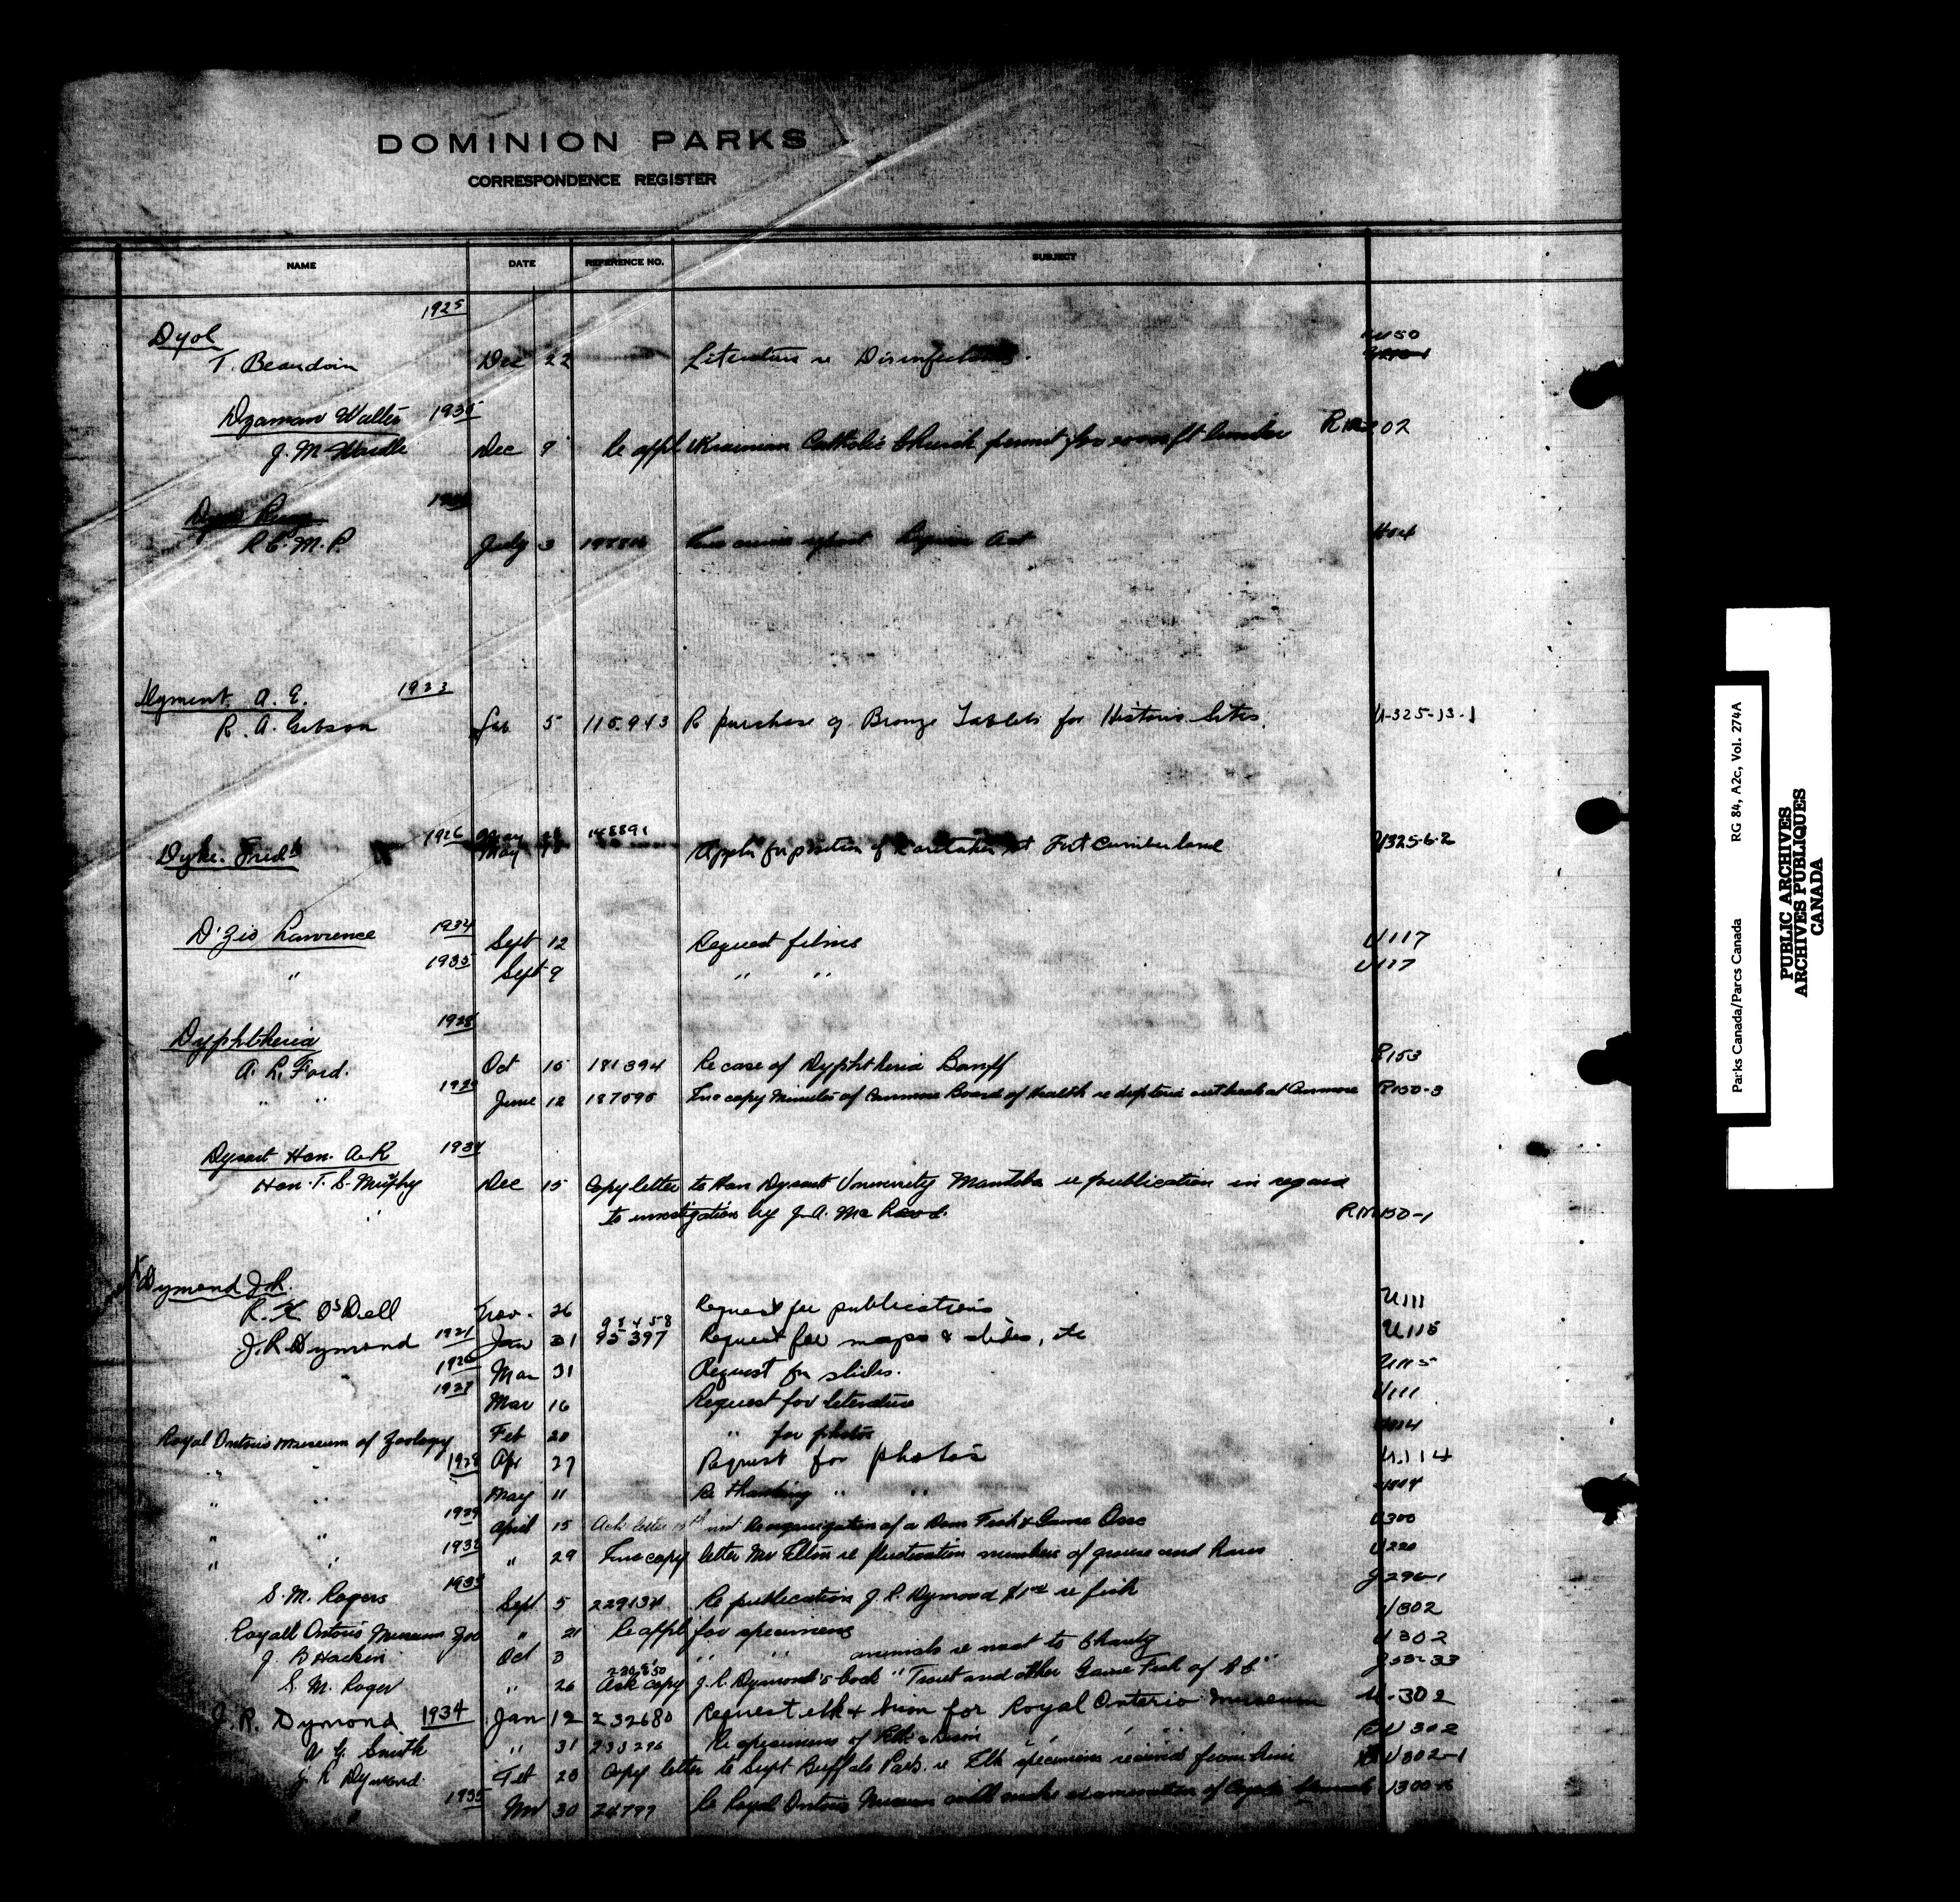 DOMINION PARKS
CORRESPONDENCE REGISTER
NAME DATE REFERENCE NO. SUBJECT
1925
Dyol U50
T. Beaudoin Dec 22 Literature re Disinfectants.
Dzaman Walter 1935
J. M. Wardle Dec 9 Re appl Ukranian Catholic Church permit for ft lumber 202
R.C.M.P. July 3 crime report Act
Dyment, A. E. 1923
R. A. Gibson Jan 5 115943 Re purchase of Bronze Tablets for Historic Sites. U-325-13-1
1926 May 148891
Dyke. Fred'k May Appln for position of Caretaker at Fort Cumberland U325-6-2
D'Zio Lawrence 1934 Sept 12 Request films U117
" 1935 Sept 9 " " U117
Dyphtheria 1928
A. L. Ford. Oct 15 181394 Re case of Dyphtheria Banff B153
" " 1929 June 12 187595 Enc copy Minutes of Canmore Board of Health re diptheria outbreak at Canmore B150-3
Dysart Hon. A. K 1934
Hon. T. G. Murphy Dec 15 Copy letter to Hon Dysart University Manitoba re publication in regard
to investigation by J. A. Mc Leod. RM150-1
Dymond J. R.
R. K. O'Dell Nov. 26 Request for publications U111
98458
J. R. Dymond 1921 Jan 31 95397 Request for maps & slides, etc U115
1926 Mar 31 Request for slides. U115
1927 Mar 16 Request for literature U111
Royal Ontario Museum of Zoology Feb 20 " for photos U114
" " 1928 Apr 27 Request for photos U.114
" " May 11 Re thanking " " U114
" " 1929 April 15 Ack letter 15th inst Reorganization of a Dom Fish & Game Assc U300
" " 1932 " 29 Enc copy letter Mr Elton re fluctuation numbers of grouse and hares U220
S. M. Rogers 1933 Sept 5 229134 Re publication J. R. Dymond $1.00 re fish J296-1
Royall Ontario Museum Zoo " 21 Re appl for specimens U302
J B Harkin Oct 3 " " animals re meat to Charity U302
S. M. Roger " 26 Ask copy J. R. Dymond's book "Trout and other Game Fish of B C"
J. R. Dymond. 1934 Jan 12 232680 Request elk & bison for Royal Ontario Museum U-302
A G. Smith " 31 233296 Re specimens of Elk & Bison " " BU302
J. R Dymond. Feb 20 Copy letter to Supt Buffalo Park. re Elk specimens received from him BU302-1
1935 Nov 30 24799 Re Royal Ontario Museum will make examination of Coyote Stomach U300-
Parks Canada/Parcs Canada RG 84, A2c, Vol. 274A
PUBLIC ARCHIVES
ARCHIVES PUBLIQUES
CANADA